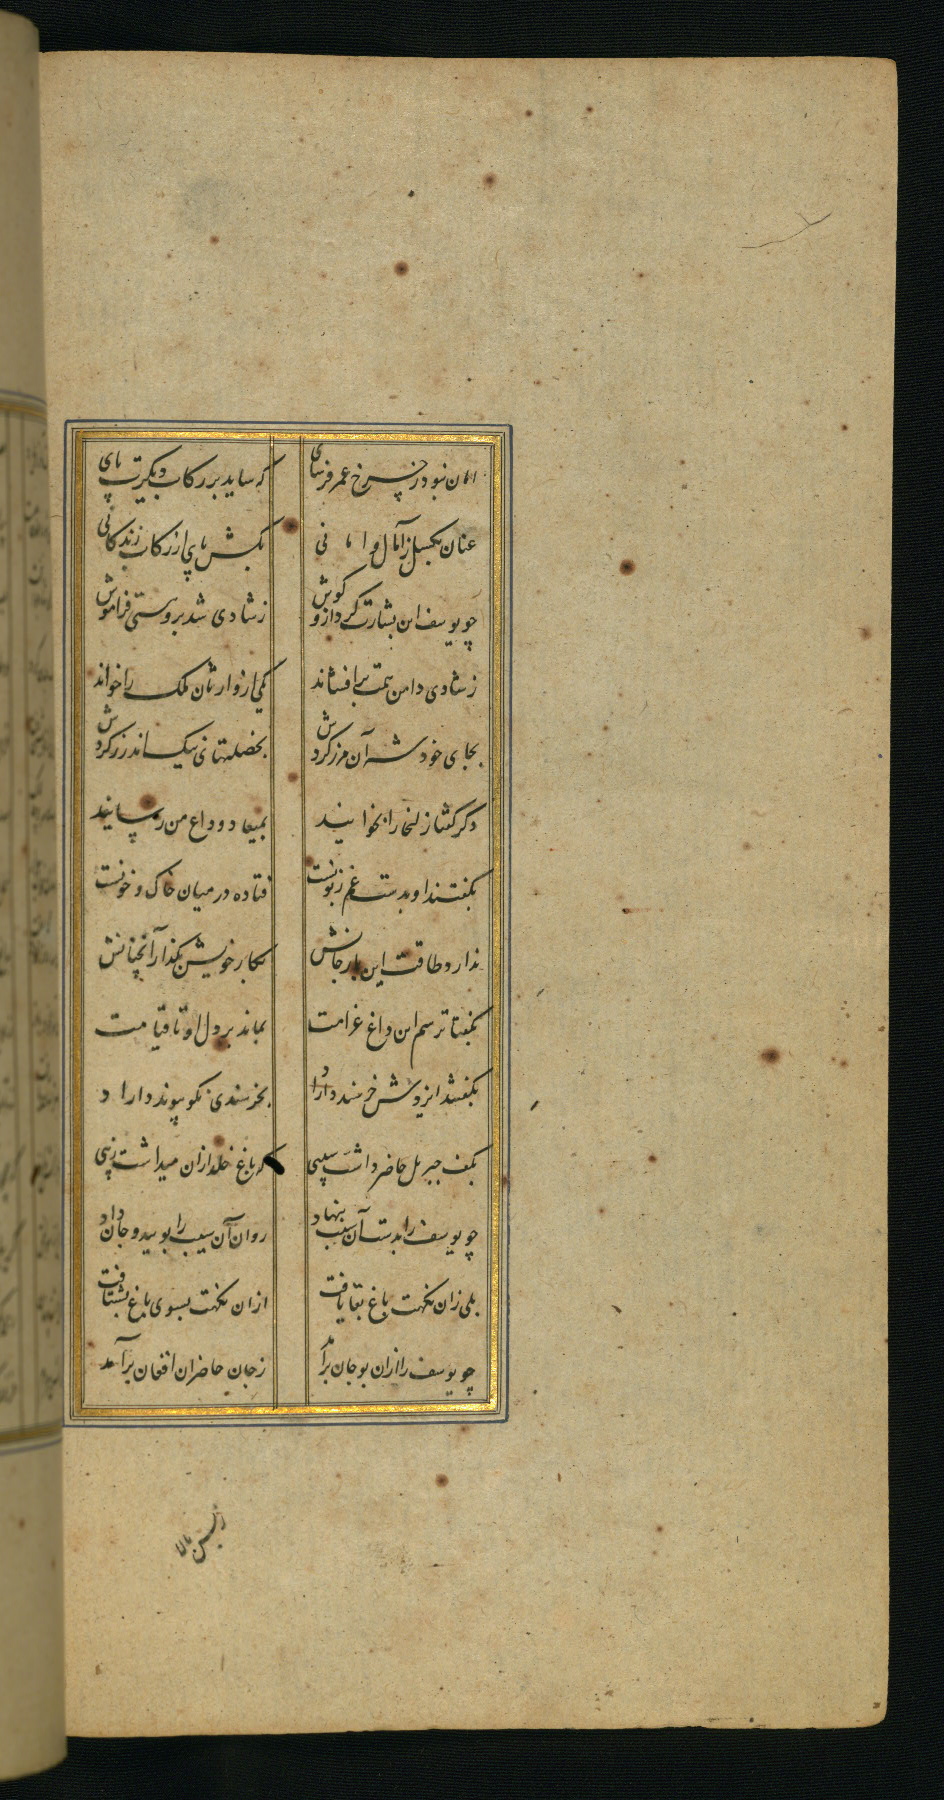 امان نبود ز چرخ عمر فرسای که ساید بر رکاب دیگرت پای
عنان بگسل ز آمال و امانی بکش پای از رکاب زندگانی
چو یوسف این بشارت کرد ازو گوش ز شادی شد بر وهستی فراموش
ز شادی دامن همت برافشاند یکی از وارثان ملک را خواند
بجای خود شه آن مرز کردش بخصلتهای نیک اندرز کردش
دگر گفتا زلیخا را بخوانید بمیعاد وداع من رسانید
بگفتند او بدست غم زبونست فتاده در میان خاک و خونست
ندارد طاقت این بار جانش بکار خویش بگذار آنچنانش
بگفتا ترسم این داغ غرامت بماند بر دل او تا قیامت
بگفتند ایزدش خرسند داراد بخرسندی نکو پیوند داراد
بکف جبریل حاضر داشت سیبی که باغ خلد ازان میداشت زیبی
چو یوسف را بدست آن سیب بنهاد روان آن سیب را بویید و جان داد
بلی زان نکهت باغ بقا یافت ازان نکهت بسوی باغ بشتافت
چو یوسف را ازان بو جان برآمد ز جان حاضران افغان برآمد
ز بس بالا